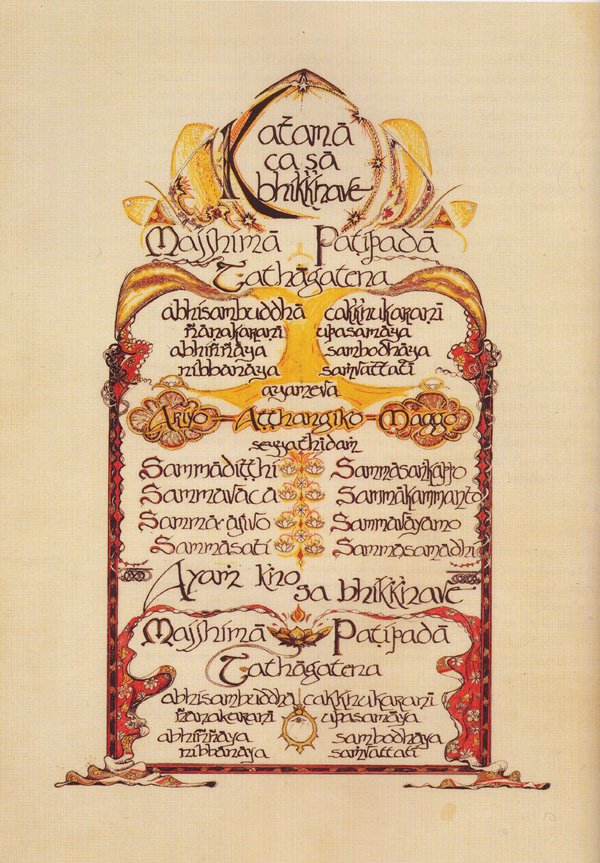 Katamā
ca sā
bhikkhave
Majjhimā Paṭipadā
Tathāgatena
abhisambuddhā cakkhukaraṇī
ñāṇakaraṇī upasamāya
abhiññāya sambodhāya
nibbānāya saṁvattati
ayameva
Ariyo Aṭṭhangiko Maggo
seyyathīdaṁ
Sammādiṭṭhi Sammāsaṅkappo
Sammāvācā Sammākammanto
Sammā-ājivo Sammāvāyamo
Sammāsati Sammāsamādhi
Ayaṁ kho sa bhikkhave
Majjhimā Paṭipadā
Tathāgatena
abhisambuddhā cakkhukaraṇī
ñāṇakaraṇī upasamāya
abhiññāya sambodhāya
nibbānāya saṁvattati